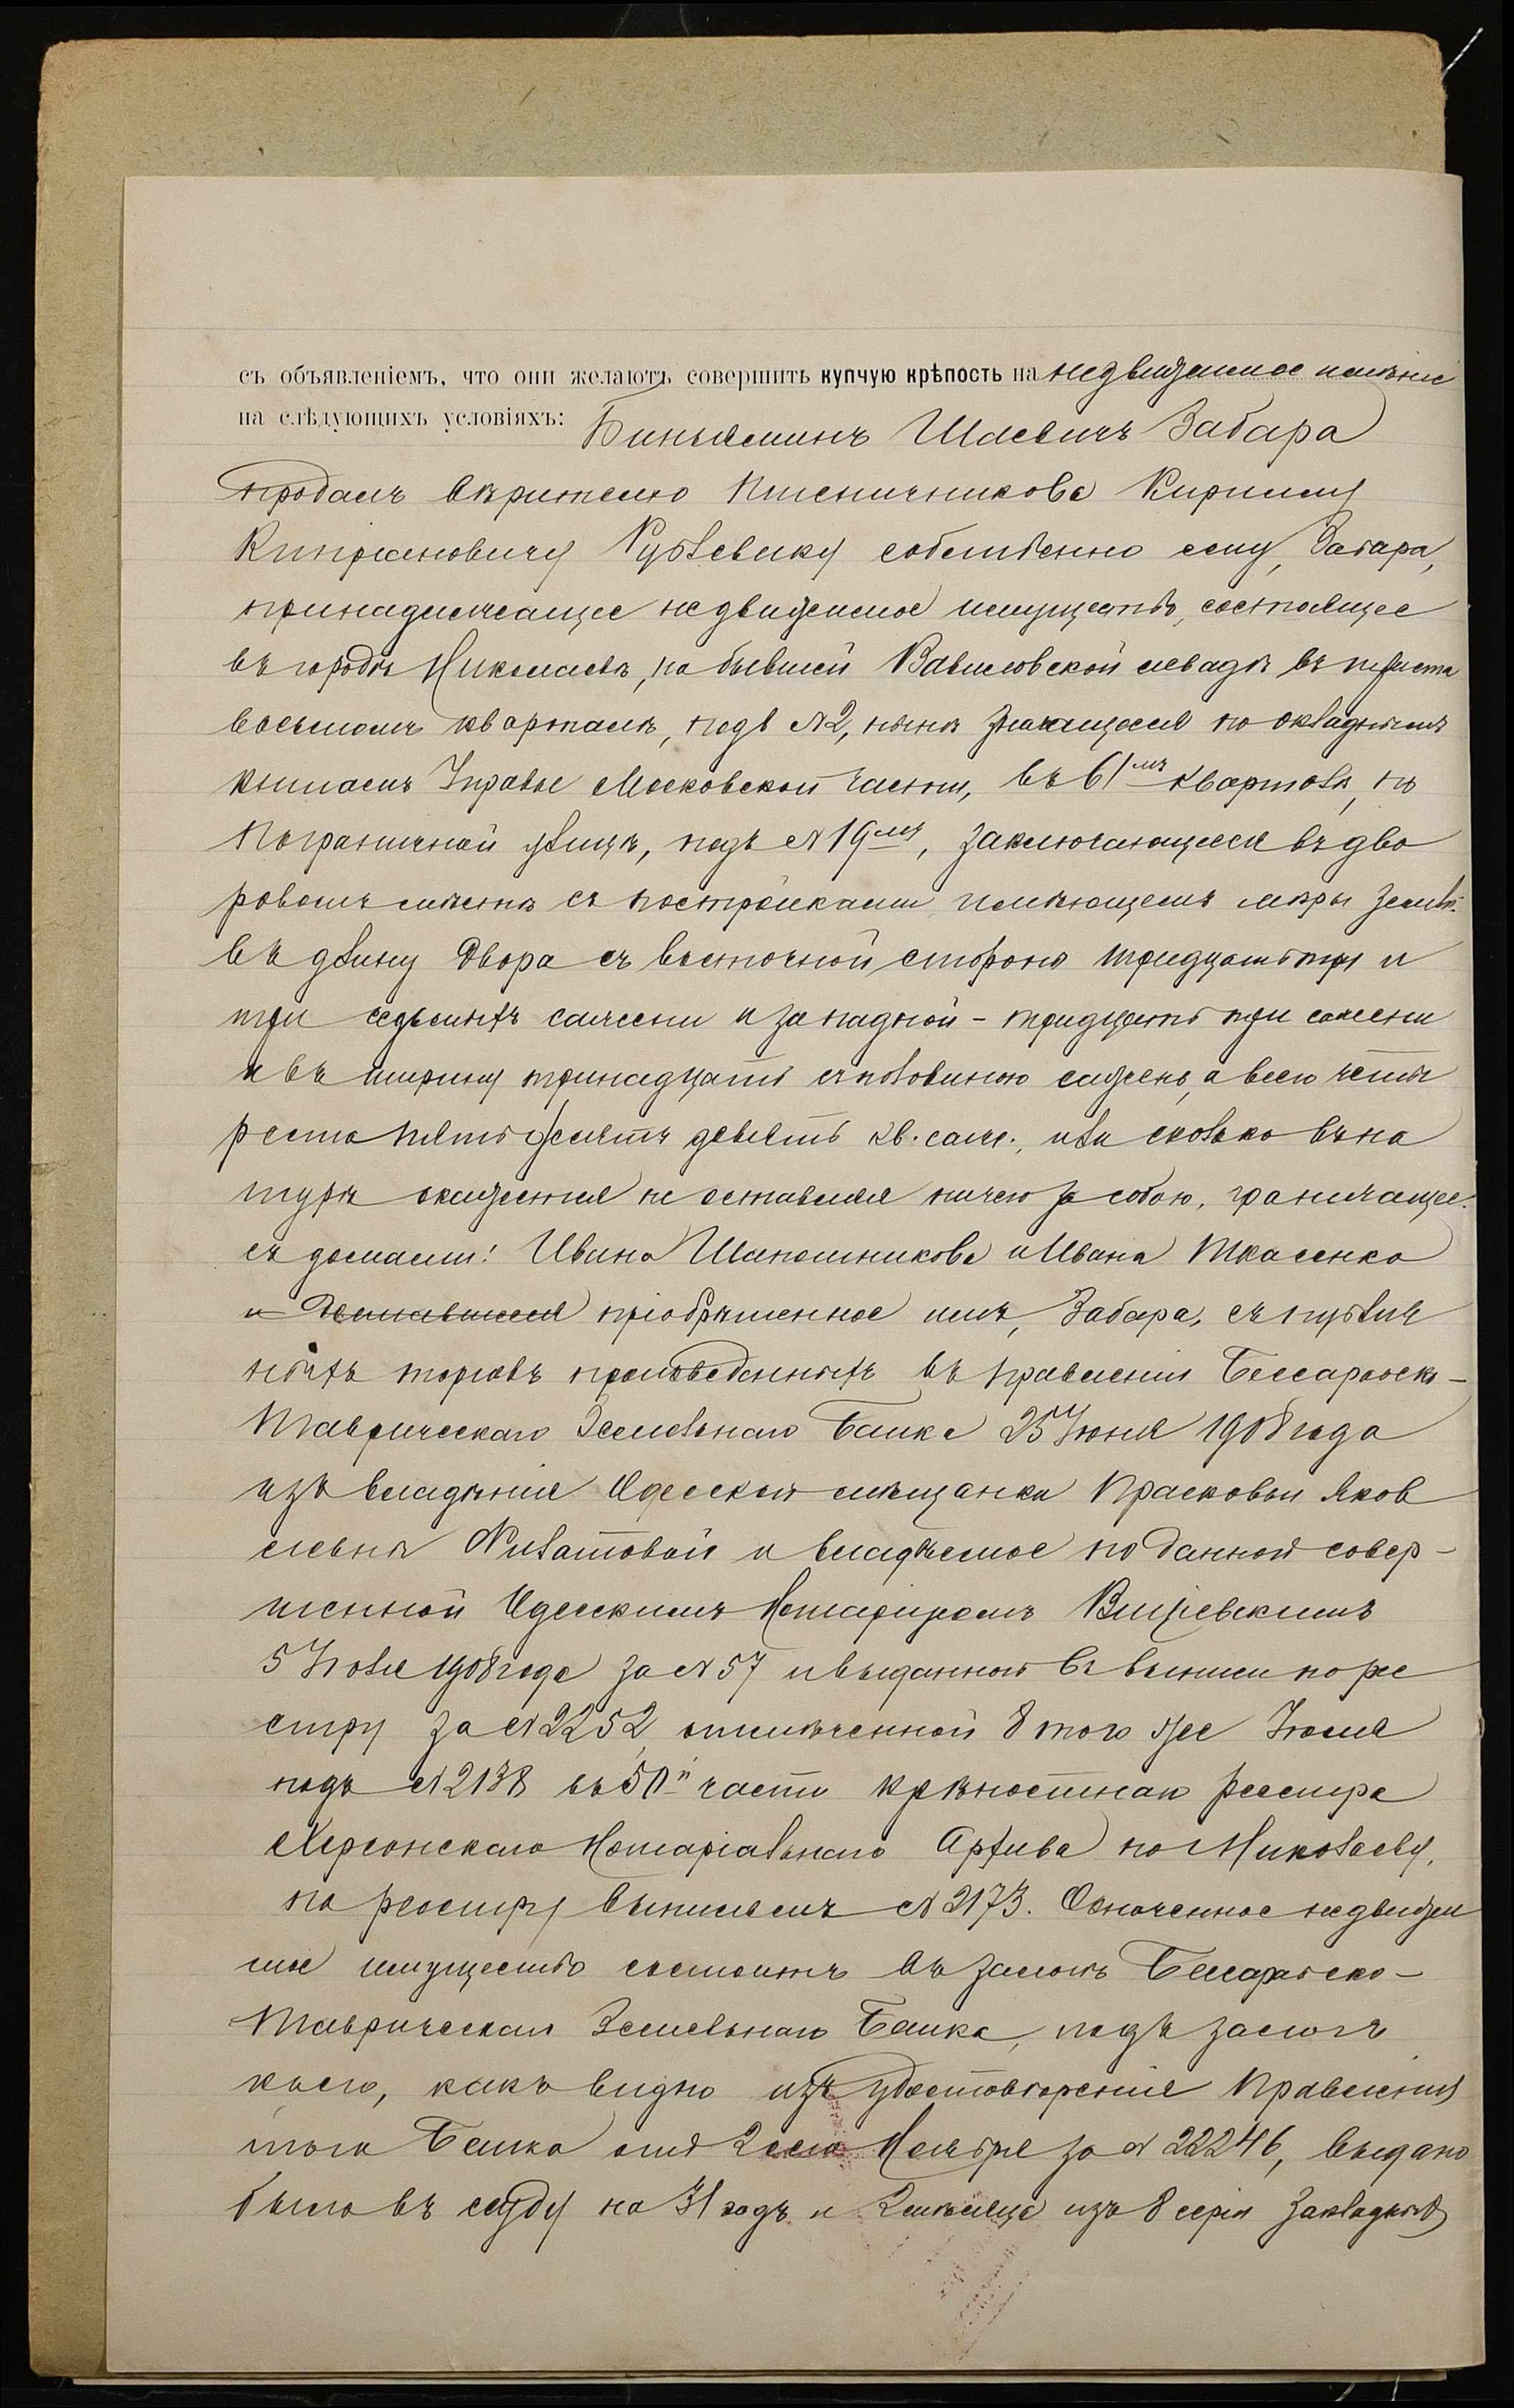 съ объявленіемъ, что они желаютъ совершить купчую крѣпость на недвижимое имѣніе
на слѣдующихъ условіяхъ: Биньяминъ Шаевичъ Забара
продалъ вѣрителю Пшеничникова Кириллу
Кипріановичу собственно ему, Забара,
принадлежащее недвижимое имущество, состоящее
въ городѣ Николаевѣ, на бывшей Вавиловской левадѣ въ триста
восьмомъ кварталѣ, подъ №2, нынѣ значащееся по окладнымъ
книгамъ Управы Московской части, въ 61мъ кварталѣ, по
Пограничной улицѣ, подъ №19мъ, заключающееся въ дво
ровомъ мѣстѣ съ постройками имѣющемъ мѣры земли:
въ длину двора съ восточной стороны тридцать три и
три седьмыхъ сажени и западной - тридцать три сажени
и въ ширину тринадцать съ половиною сажень, а всего четы
реста пятьдесятъ девять кв. саж., или сколько въ на
турѣ окажется не оставляя ничего за собою, граничащее
съ домами: Ивана Шапошникова и Ивана Ткаченко
и пріобрѣтенное имъ, Забара, съ публич
ныхъ торговъ произведенныхъ въ правленіи Бессарабско-
Таврическаго Земельнаго Банка 25 Іюня 1908 года
изъ владѣнія Одесской мѣщанки Прасковьи Яков
левны Филатовой и владѣемое по данной совер-
шенной Одесскимъ Нотаріусомъ
5 Іюля 1908 года за №57 и выданной въ выписи по рее
стру за №2252, отмѣченной 8 того же Іюля
подъ №2138 въ 50й части крѣпостнаго реестра
Херсонскаго Нотаріальнаго Архива по Николаеву,
по реестру выписямъ №2173. Означенное недвижи
мое имущество состоитъ въ залогѣ Бессарабско-
Таврическаго Земельнаго Банка, подъ залогъ
коего, какъ видно изъ удостовѣренія Правленія
того Банка отъ 2сего Ноября за №22246, выдано
было въ ссуду на 31 годъ и 2 мѣсяца изъ 8 серіи закладныхъ